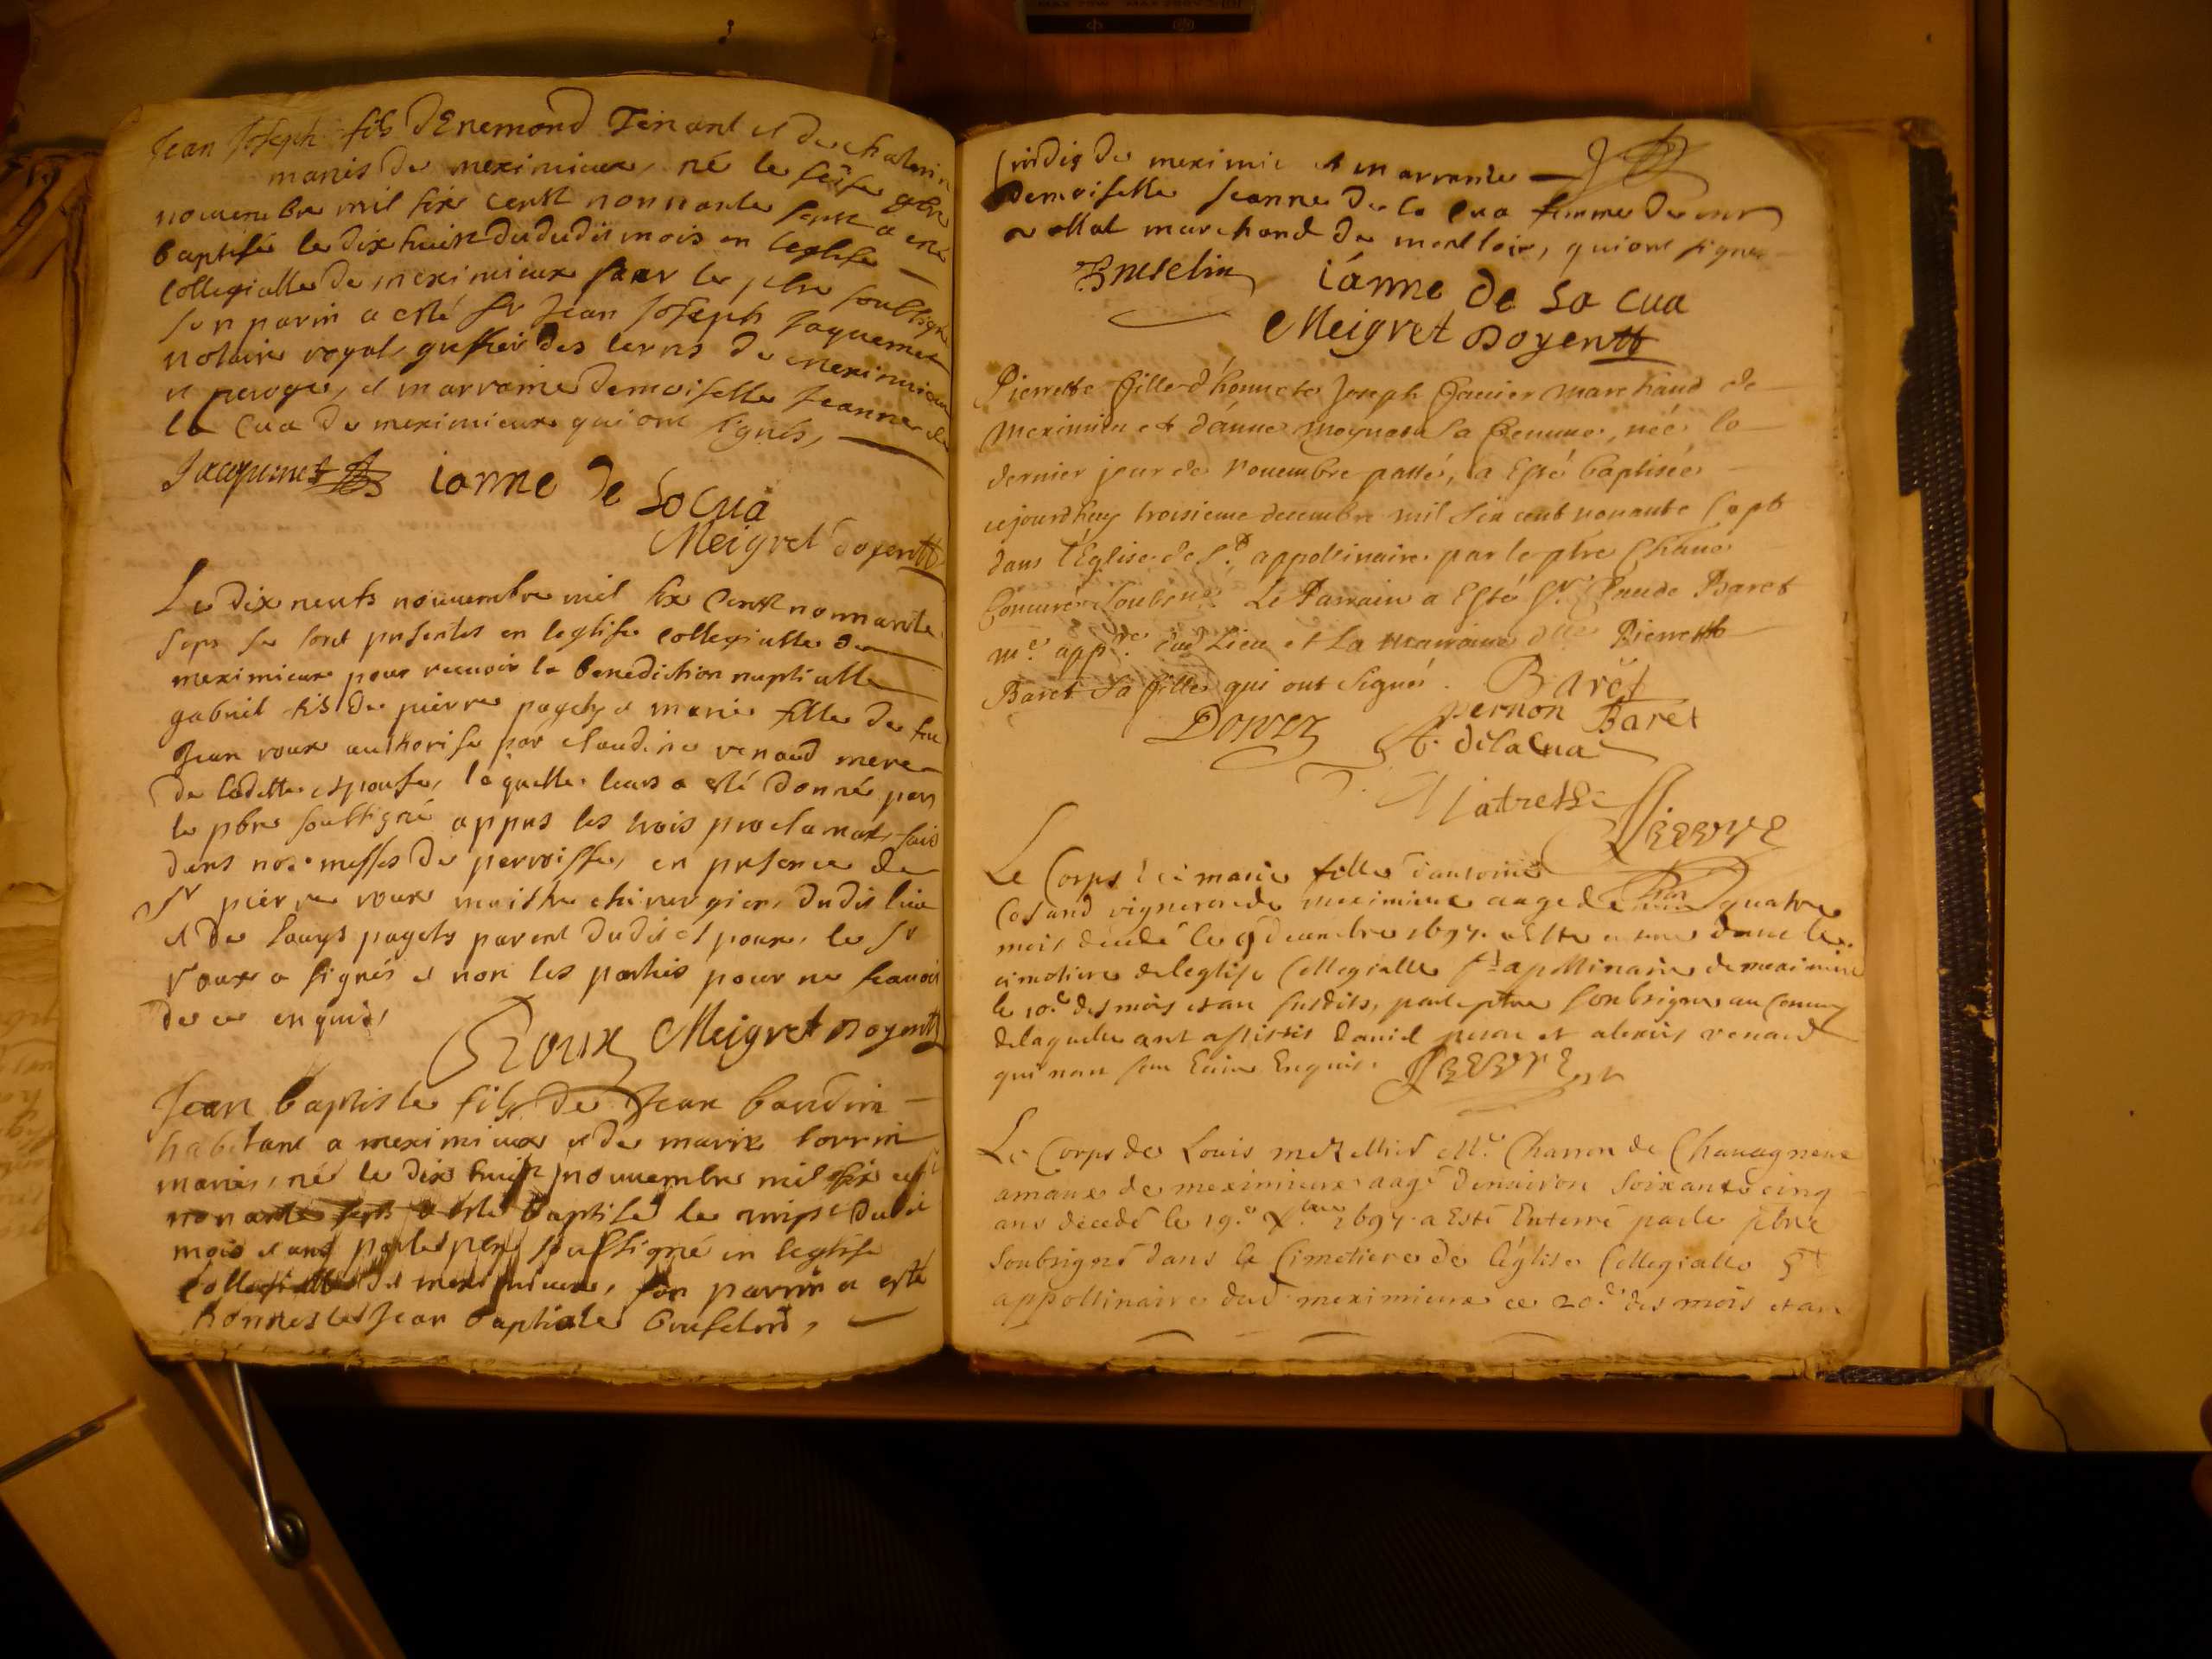 Jean Joseph fils dEnemond Tenant et de
maries de meximieux, né le seise
nouembre mil six cent nonnante sept a esté
baptisé le dix huict dududit mois en leglise
collegialle de meximieux par le pbre soubsigné
son parin a esté Sr Jean Joseph Jaquemet
notaire royal greffier des terres de meximieux
et peroge, et marraine demoiselle Jeanne de
la Cua de meximieux qui ont signés,
Jacquemet ianne de Lo Cua
Meigret doyen
Le dix neufs nouuembre mil six Cent nonnante
sept se sont presentes en leglise collegialle de
meximieux pour receuoir la benediction nuptialle
gabriel fils de pierre pagets et marie fille de feu
Jean roux authorise par claudine venard mere
de laditte espouse, laquelle leurs a esté donnée par
le pbre soubsigné appres les trois proclamat fais
dans nos messes de perroisse, en presence de
Sr pierre roux maistre chirurgien, dudit lieu
et de Louys pagets parent dudit espoux, le Sr
roux a signés et non les parties pour ne scauoir
de ce enquis,
Roux Meigret doyen
Jean baptiste fils de Jean baudin
habitant a meximieux et de marie
maries, né le dix huict nouuembre mil six cent
nonante sept a esté baptisé le dudit
mois et an par le pbre soubsigné en leglise
Collegialle de meximieux, son parrin a esté
honneste Jean baptiste
sindig de meximie et marrante
Demoiselle Jeanne de la Cua femme de
marchand de montloir, qui ont signer
ianne De La Cua
Meigret Doyen
Pierrette fille d'honneste Joseph marchand de
Meximieu et d'anne sa femme, née le
dernier jour de Nouembre passé, a Esté baptisée
cejourdhuy troisieme decembre mil six cent nonante sept
dans l'Eglise de St. appollinaire par le pbre Chane
Concuré soubsné. Le Parrain a Esté Sr. Claude Baret
me. appre. dud Lieu et La marraine dlle Pierrette
Baret sa fille qui ont signé. Baret
pernon Baret
delacua
Le Corps de marie fille dantoine
vigneron de meximieux aagé de quatre
mois decedé le 9 decembre 1697. a esté enterré dans le
cimetiere de leglise Collegialle St apollinaire de meximieux
le 10e des mois et an susdits, par le pbre soubsigné au conuoy
de laquelle ont assistés daniel et alexis venard
qui nont seu Ecrire Enquis.
Le Corps de Louis Me. Charron de Chauagneux
amaux de meximieux aagé denuiron soixante cinq
ans decedé le 19.e Xbre 1697. a Esté Enterré par le pbre
soubsigné dans le Cimetiere de l'église Collegialle St
appollinaire dud meximieux ce 20.e des mois et an